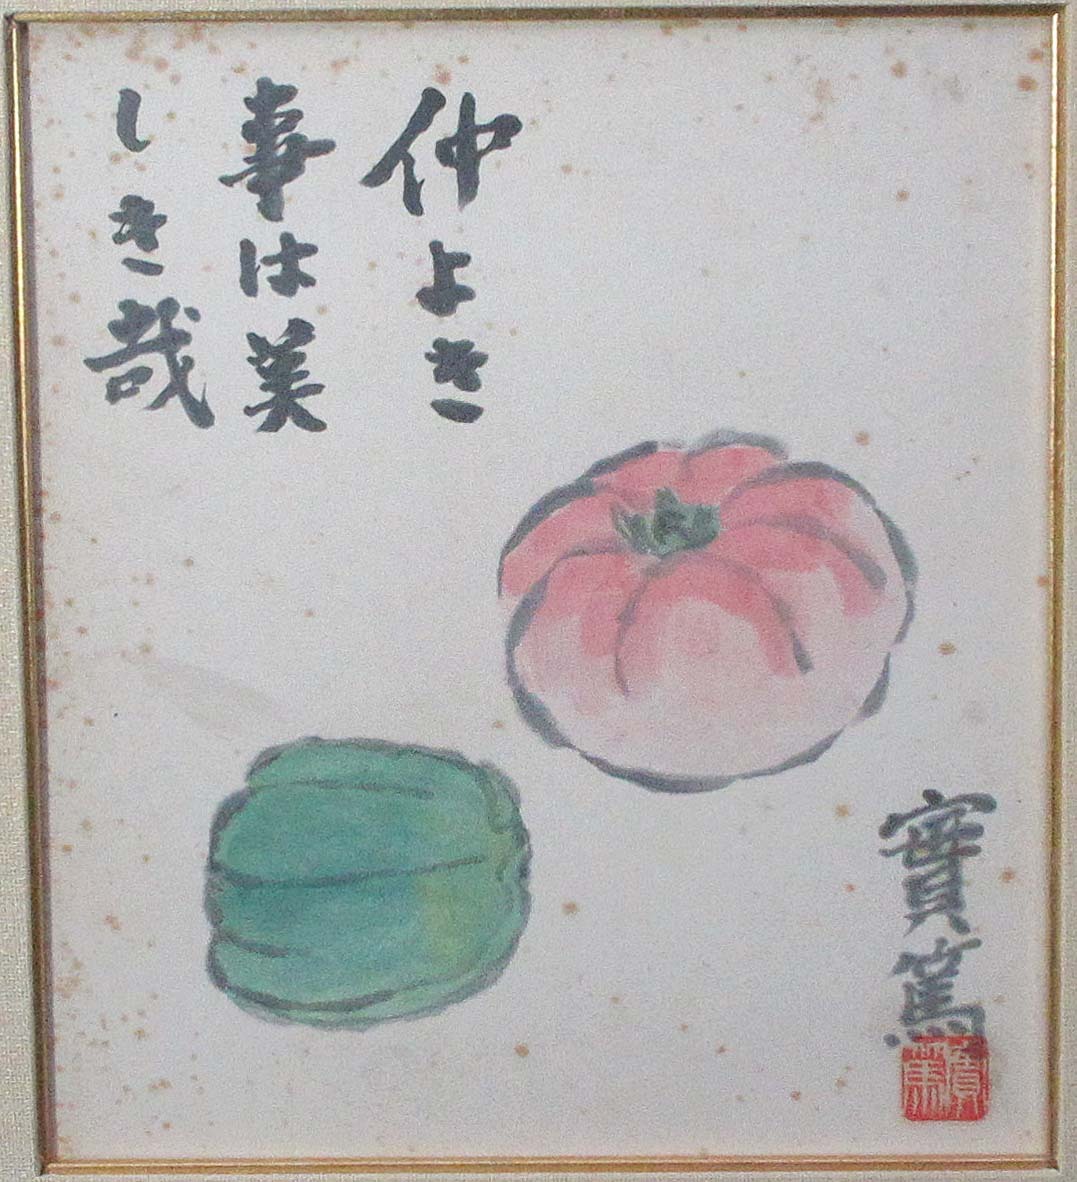 仲よき
事は美
しき哉
實篤
實篤